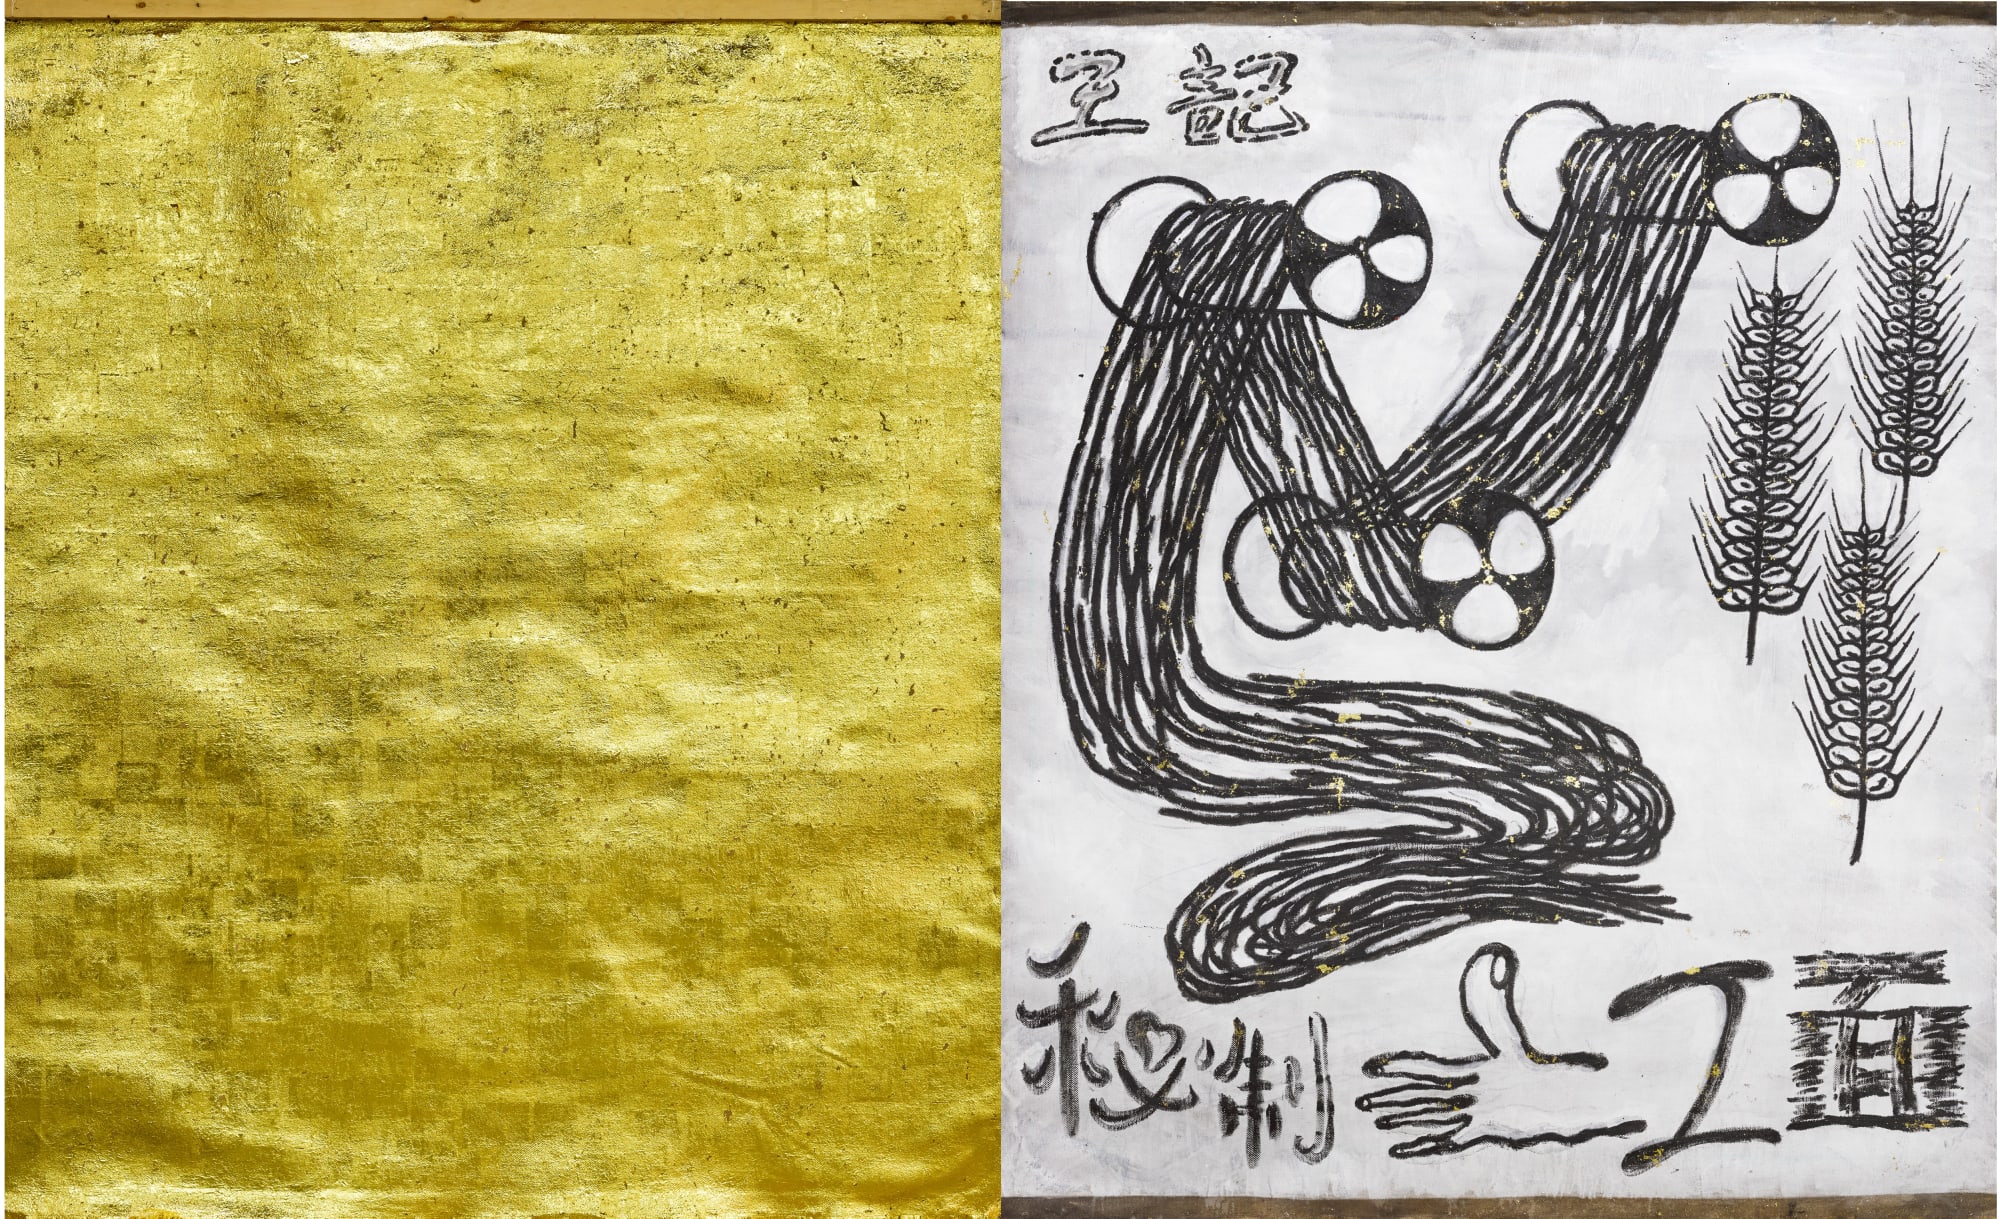 王記
秘制 工面